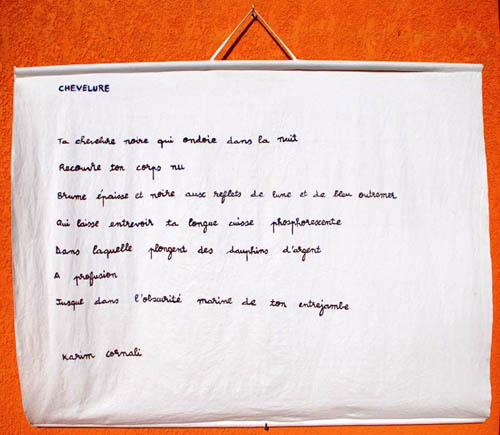 CHEVELURE
Ta chevelure noire qui ondoie dans la nuit
Recouvre ton corps nu
Brume épaisse et noire aux reflets de lune et de bleu outremer
Qui laisse entrevoir ta longue cuisse phosphorescente
Dans laquelle plongent des dauphins d'argent
A profusion
Jusque dans l'obscurité marine de ton entrejambe
Karim Cornali